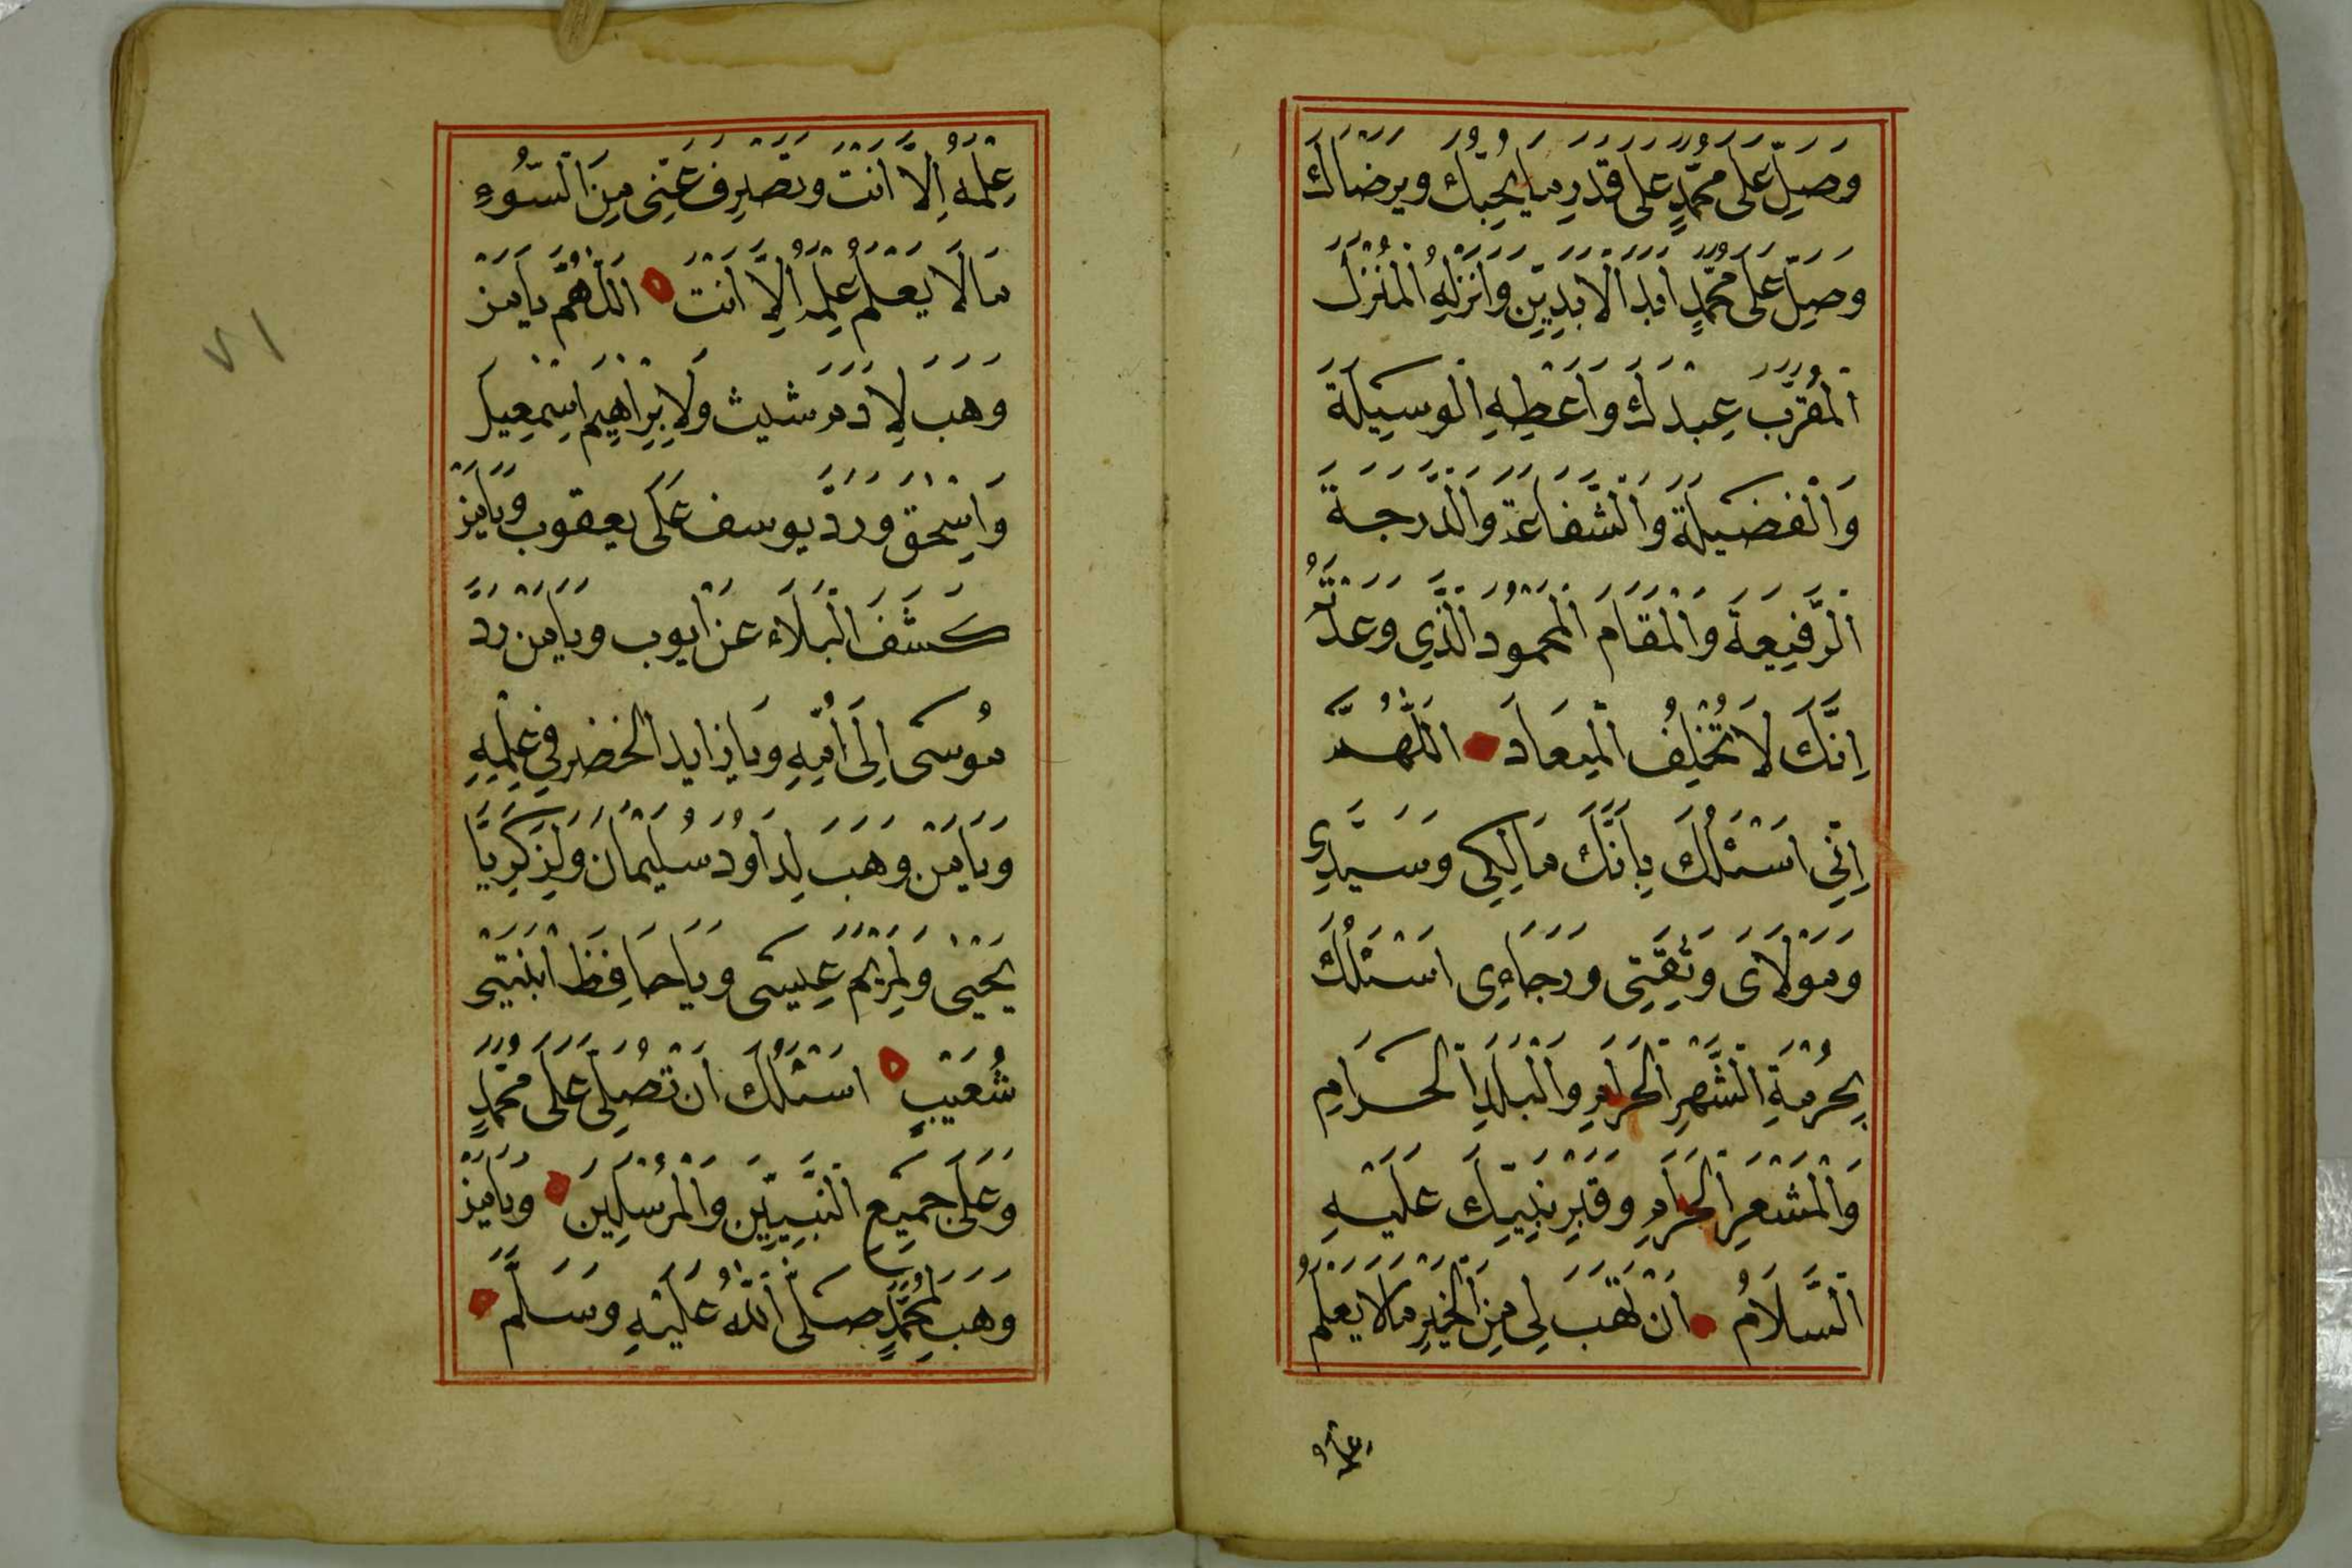 وَصَلِّ عَلَى مُحَمَّدٍ عَلَى قَدْرِ مَا يُحِبُّكَ وَيَرْضَاكَ
وَصَلِّ عَلَى مُحَمَّدٍ اَبَدَ الْاَبَدِيْنَ وَاَنْزِلْهِ الْمُنْزَلَ
الْمُقَرَّبَ عِنْدَكَ وَاَعْطِهِ الْوَسِيلَةَ
وَالْفَضِيلَةَ وَالشَّفَاعَةَ وَالدَّرَجَةَ
الرَّفِيعَةَ وَالْمَقَامَ الْمَحْمُودَ الَّذِي وَعَدْتَهُ
اِنَّكَ لَا تُخْلِفُ الْمِيعَادَ اَللّٰهُمَّ
اِنِّي اَسْئَلُكَ بِاَنَّكَ مَالِكِى وَسَيِّدِى
وَمَوْلَاىَ وَثِقَتِى وَرَجَاءِى اَسْئَلُكَ
بِحُرْمَةِ الشَّهْرِ الْحَرَامِ وَالْبَلَدِ الْحَرَامِ
وَالْمَشْعَرِ الْحَرَامِ وَقَبْرِ نَبِيِّكَ عَلَيْهِ
السَّلَامُ اَنْ تَهَبَ لِى مِنَ الْخَيْرِ مَالَا يَعْلَمُ
عِلْمَهُ
عِلْمَهُ اِلَّا اَنْتَ وَتَصْرِفَ عَنِّى مِنَ السُّوءِ
مَالَا يَعْلَمُ عِلْمَهُ اِلَّا اَنْتَ اَللّٰهُمَّ يَامَنْ
وَهَبَ لِاٰدَمَ شيث وَلِاِبْرٰاهِيمَ اِسْمٰعِيلَ
وَاِسْحٰقَ وَرَدَّ يوسف عَلَى يعقوب وَيَامَنْ
كَشَفَ الْبَلَاءَ عَنْ ايوب وَيَامَنْ رَدَّ
مُوسٰى اِلَى اُمِّهِ وَيَا زايد الْخَضِرِ فِي عِلْمِهِ
وَيَامَنْ وَهَبَ لِدَاوُدَ سُلَيْمٰانَ وَلِزَكَرِيَّا
يَحْيٰى وَلِمَرْيَمَ عِيسَى وَيَا حَافِظَ ابْنَتِ
شُعَيْبٍ اَسْئَلُكَ اَنْ تُصَلِّىَ عَلَى مُحَمَّدٍ
وَعَلَى جَمِيعِ النَّبِيِّينَ وَالْمُرْسَلِينَ وَيَامَنْ
وَهَبَ لِمُحَمَّدٍ صَلَّى اللّٰهُ عَلَيْهِ وَسَلَّمَ
٧١